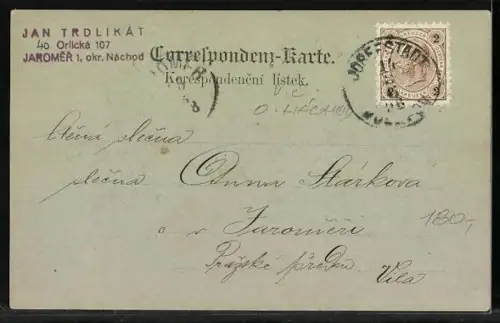 JAN TRDLIKAT
40 Orlická 107
JAROMĚŘ 1, okr. Náchod
Correspondenz-Karte.
Korespondenční lístek.
JOSEFSTADT
2
2 2
Ctěná slečna
slečna Anna Stárková
v Jaroměři
Pražské předm
Vila
180,-